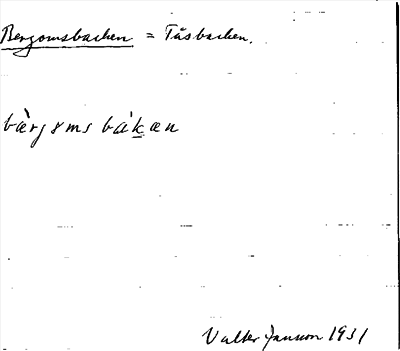 Bergomsbacken = Tåsbacken.
bὰrjɤms bákæn
Valter Janson 1931